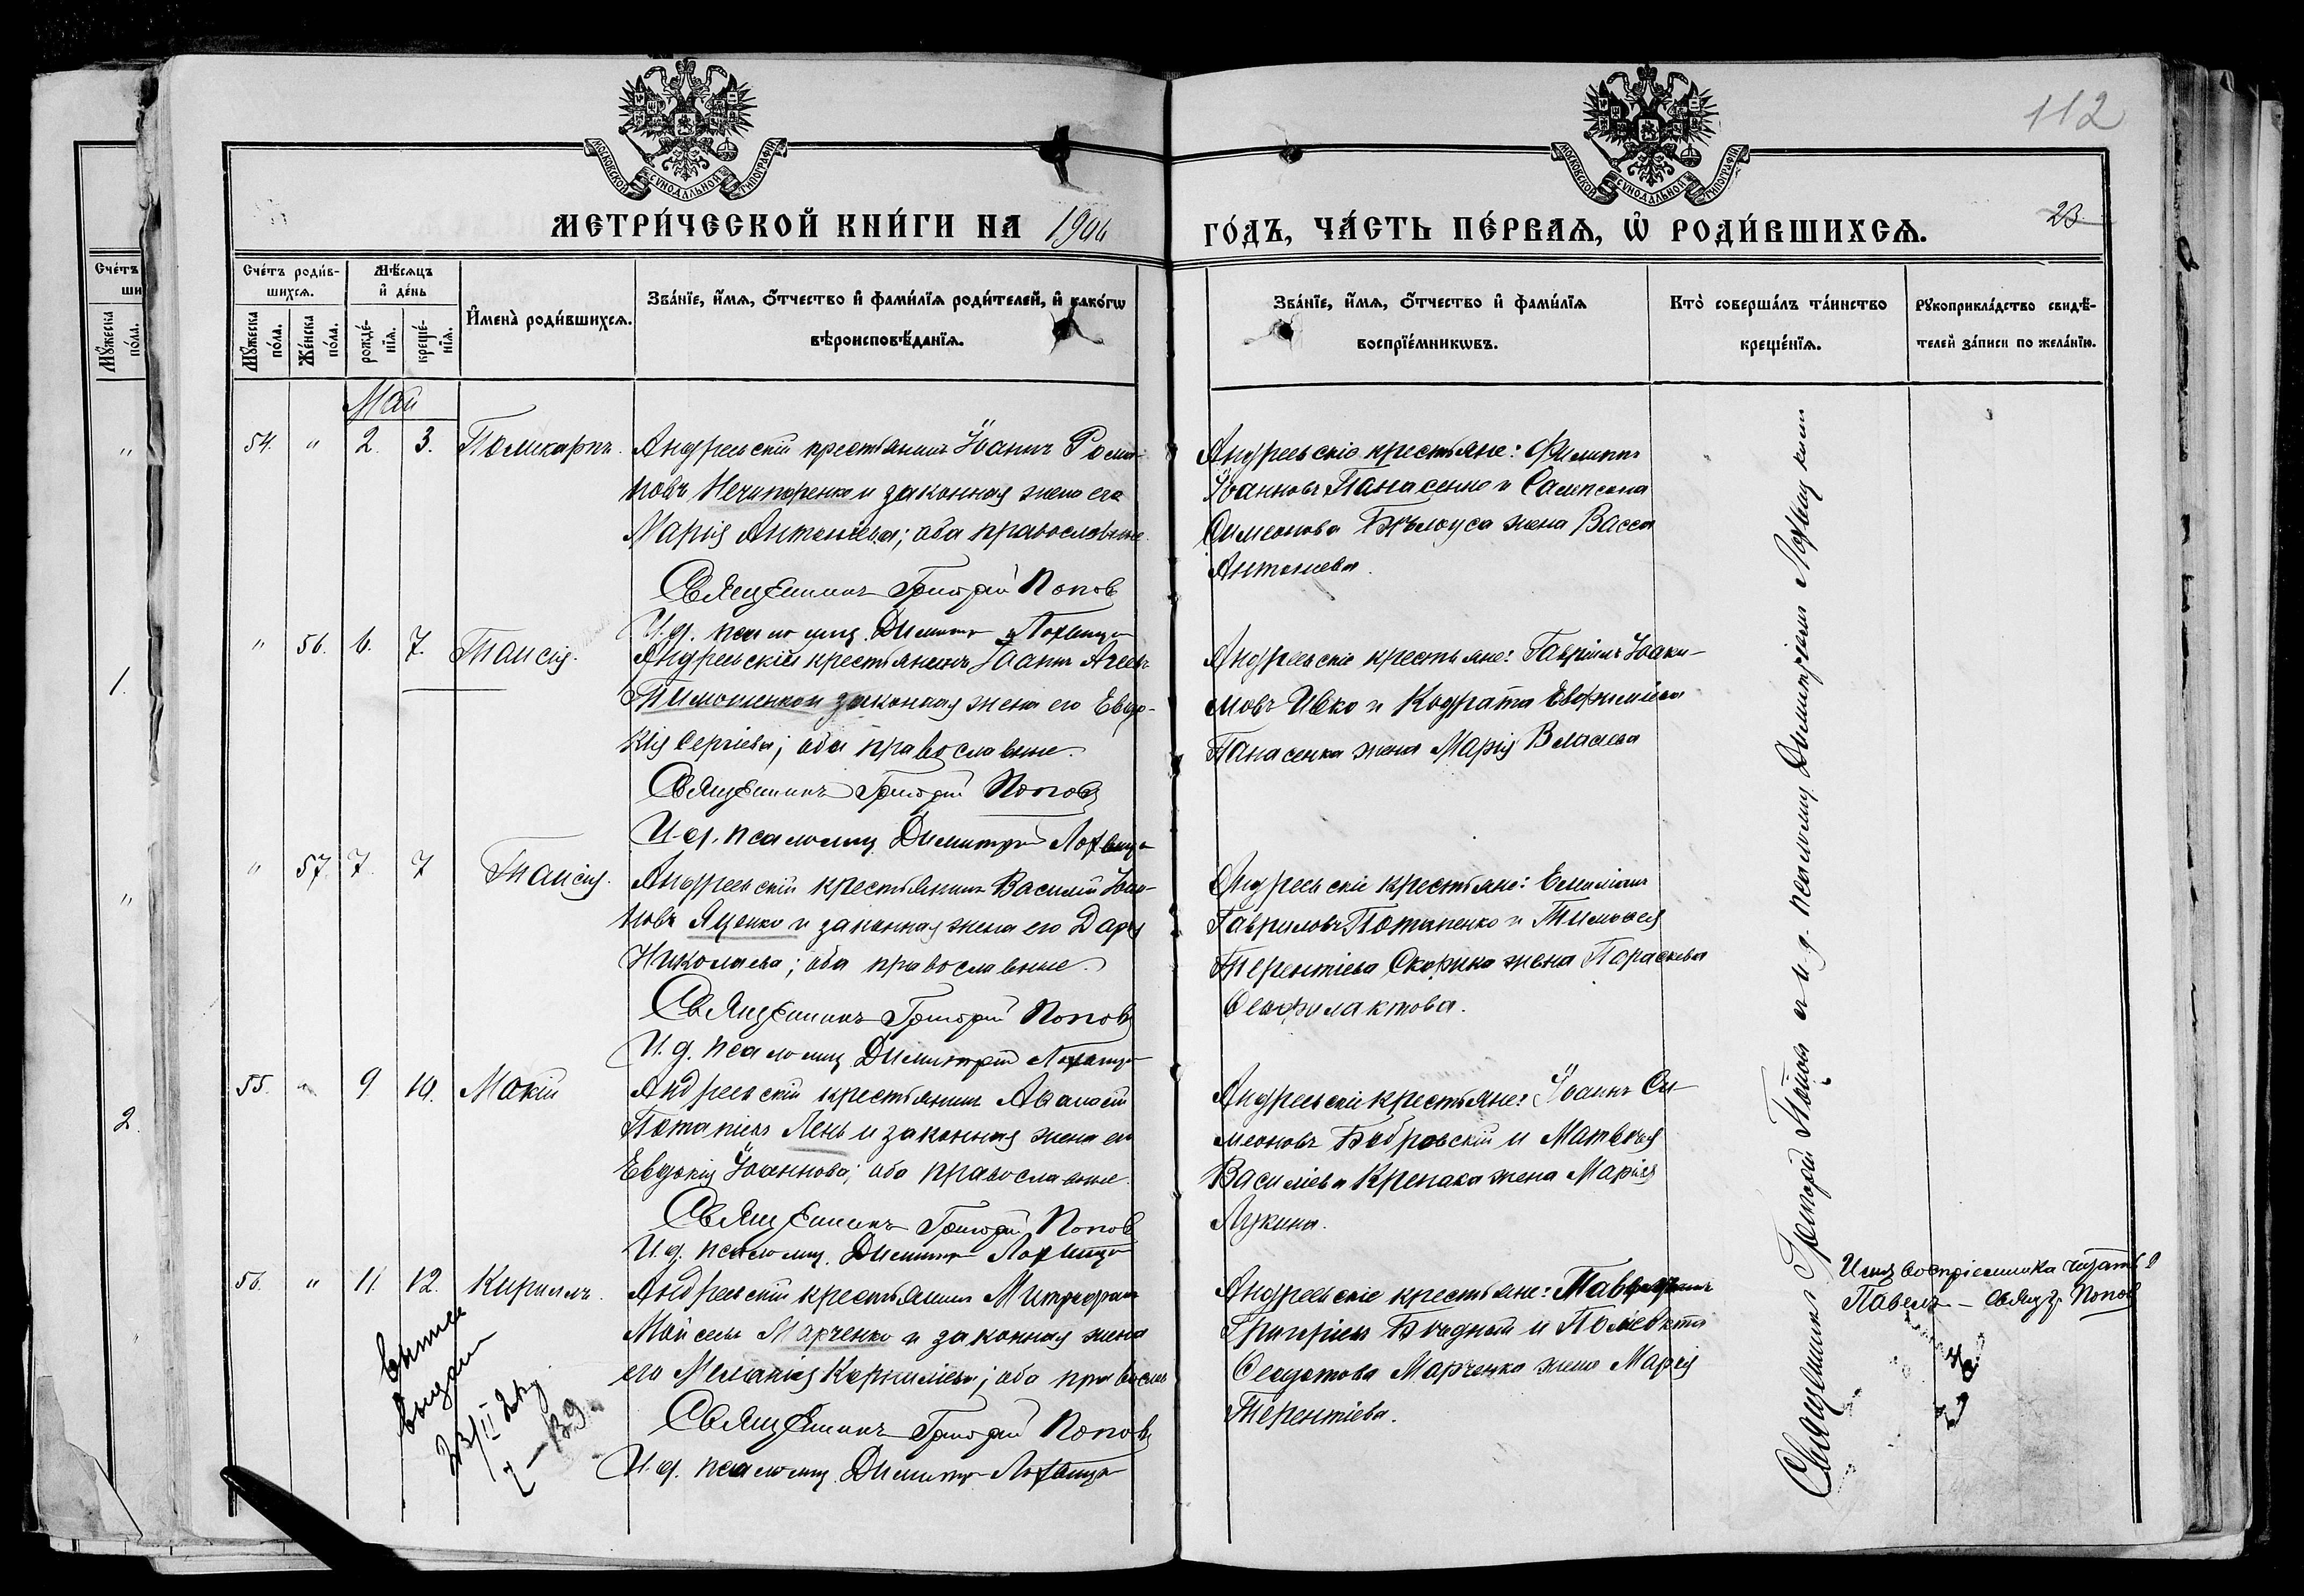 112
МОСКОВСКОЙ СѴНОДАЛЬНОЙ ТИПОГРАФІИ
МОСКОВСКОЙ СѴНОДАЛЬНОЙ ТИПОГРАФІИ
МЕТРИ́ЧЕСКОЙ КНИ́ГИ НА 1906
ГО́ДЪ, ЧА́СТЬ ПЕ́РВАѦ, Ѡ҆ РОДИ́ВШИХСѦ.
23
Счётъ
ши
Мꙋ́жеска по́ла.
Сче́тъ роди́в-
шихсѧ.
Мѣ́сѧцъ
и҆ де́нь
Мꙋ́жеска по́ла.
Же́нска по́ла.
рожде́-
нїѧ.
креще́-
нїѧ.
И҆мена̀ роди́вшихсѧ.
Зва́нїе, и҆́мѧ, ѻ҆́тчество и҆ фами́лїѧ роди́телей, и҆ како́гѡ
вѣроисповѣ́данїѧ.
Зва́нїе, и҆́мѧ, ѻ҆́тчество и҆ фами́лїѧ
воспрїе́мникѡвъ.
Кто̀ соверша́лъ та́инство
креще́нїѧ.
Рꙋкоприкла́дство свидѣ́-
телей за́писи по жела́нїю.
Май
54. " 2. 3. Поликарпъ.
Андреевскій крестьянинъ Іоаннъ Рома-
новъ Нечипоренко и законная жена его
Марія Антоніева; оба православные.
Священникъ Григорій Попов
И. д. псаломщ. Димитр Лохвица
Андреевскіе крестьяне: Филиппъ
Іоанновъ Панасенко и Сампсона
Симеонова Бѣлоуса жена Васса
Антоніева.
" 56. 6. 7. Таисія.
Андреевскій крестьянинъ Іоаннъ
Тимошенко и законная жена его Евдо-
кія Сергіева; оба православные.
Священникъ Григорій Попов
И. д. псаломщ. Димитрій Лохвица
Андреевскіе крестьяне: Гавріилъ Іоаки-
мовъ Ивко и Кодрата Евфиміева
Панасенка жена Марія Власіева
" 57. 7. 7 Таисія.
Андреевскій крестьянинъ Василій Іоан-
новъ Яценко и законная жена его Дарія
Николаева; оба православные.
Священникъ Григорій Попов
И. д. псаломщ. Димитрій Лохвица
Андреевскіе крестьяне: Емиліанъ
Гавриловъ Потапенко и Тимофея
Терентіева Скорика жена Параскева
Феофилактова.
55. " 9 10. Мокій
Андреевскій крестьянинъ Аѳанасій
Потапіевъ Лень и законная жена его
Евдокія Іоаннова; оба православные.
Священникъ Григорій Попов
И. д. псаломщ. Димитр Лохвица
Андреевскіе крестьяне: Іоаннъ Си-
меоновъ Бобровскій и Матвѣя
Василіева жена Марія
Лукина.
56. " 11. 12. Кириллъ.
Андреевскій крестьянинъ Митрофанъ
Моисеевъ Марченко и законная жена
его Меланія Корниліева; оба православ
Священникъ Григорій Попов
И. д. псаломщ. Димитр Лохвица
Андреевскіе крестьяне:
Григоріевъ Бѣдный и Поліевкта
Марченко жена Марія
Терентіева.
Священникъ Григорій Поповъ съ и. д. псаломщ. Димитріемъ Лохвицкимъ
Имя воспріемника читать
Павелъ – Свящ. Г. Попов
выпись
выдан
23/II
1.
2.